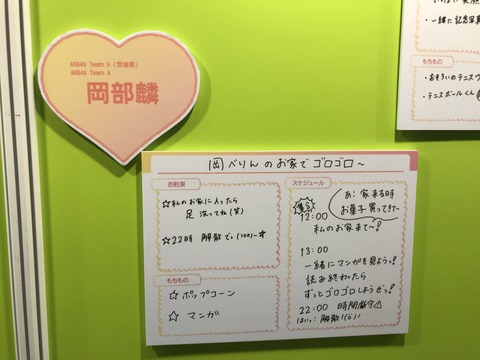 AKB48 Team 8（茨城県）
AKB48 Team A
岡部麟
一緒に記念写真
もちもの
・おそろいのテニスウ
・テニスボールくん
岡べりんのお家でゴロゴロ〜
お約束
☆私のお家に入ったら
足洗ってね(笑)
☆22時 解散でっ
もちもの
☆ポップコーン
☆マンガ
スケジュール
集合
12:00
あ:家来る時
お菓子買ってきて〜
私のお家来て〜!
13:00
一緒にマンガを見ようっ!
読み終わったら
ずっとゴロゴロしようぜっ!
22:00 時間厳守⚠
はいっ:解散!